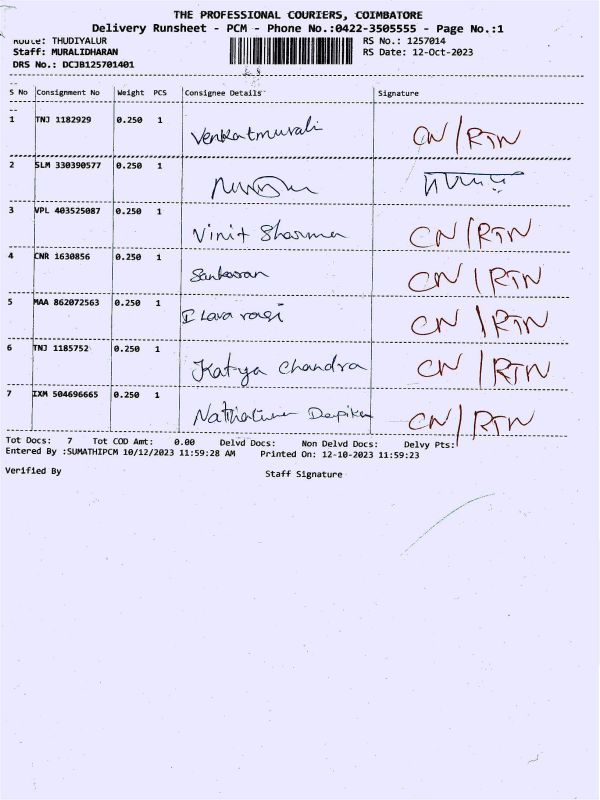 THE PROFESSIONAL COURIERS, COIMBATORE
Delivery Runsheet - PCM - Phone No.:0422-3505555 - Page No.:1
Route: THUDIYALUR RS No.: 1257014
Staff: MURALIDHARAN RS Date: 12-Oct-2023
DRS No.: DCJB125701401
S No Consignment No Weight PCS Consignee Details Signature
1 TNJ 1182929 0.250 1 Venkatmurali CN/RTN
2 SLM 330390577 0.250 1
3 VPL 403525087 0.250 1 Vinit Sharma CN/RTN
4 CNR 1630856 0.250 1 Sankaran CN/RTN
5 MAA 862072563 0.250 1 CN/RTN
6 TNJ 1185752 0.250 1 Katya Chandra CN/RTN
7 IXM 504696665 0.250 1 Depika CN/RTN
Tot Docs: 7 Tot COD Amt: 0.00 Delvd Docs: Non Delvd Docs: Delvy Pts:
Entered By :SUMATHIPCM 10/12/2023 11:59:28 AM Printed On: 12-10-2023 11:59:23
Verified By Staff Signature